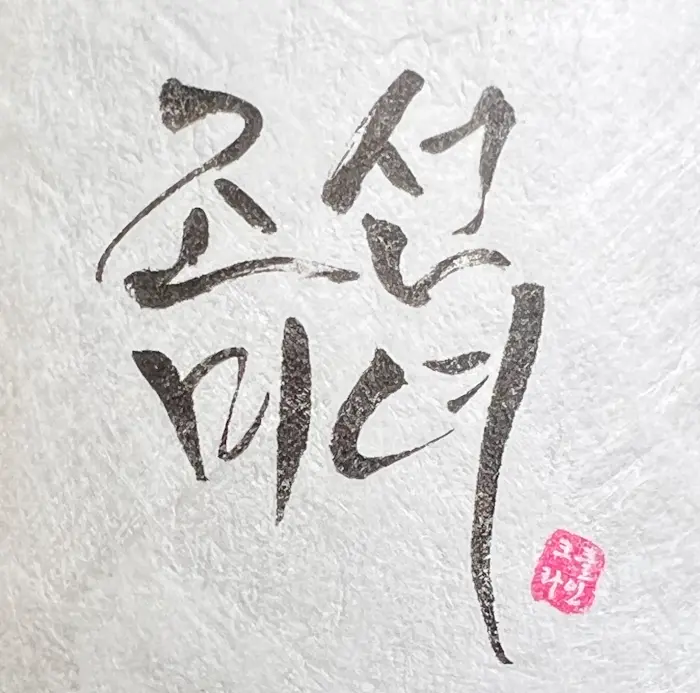 조선
미녀